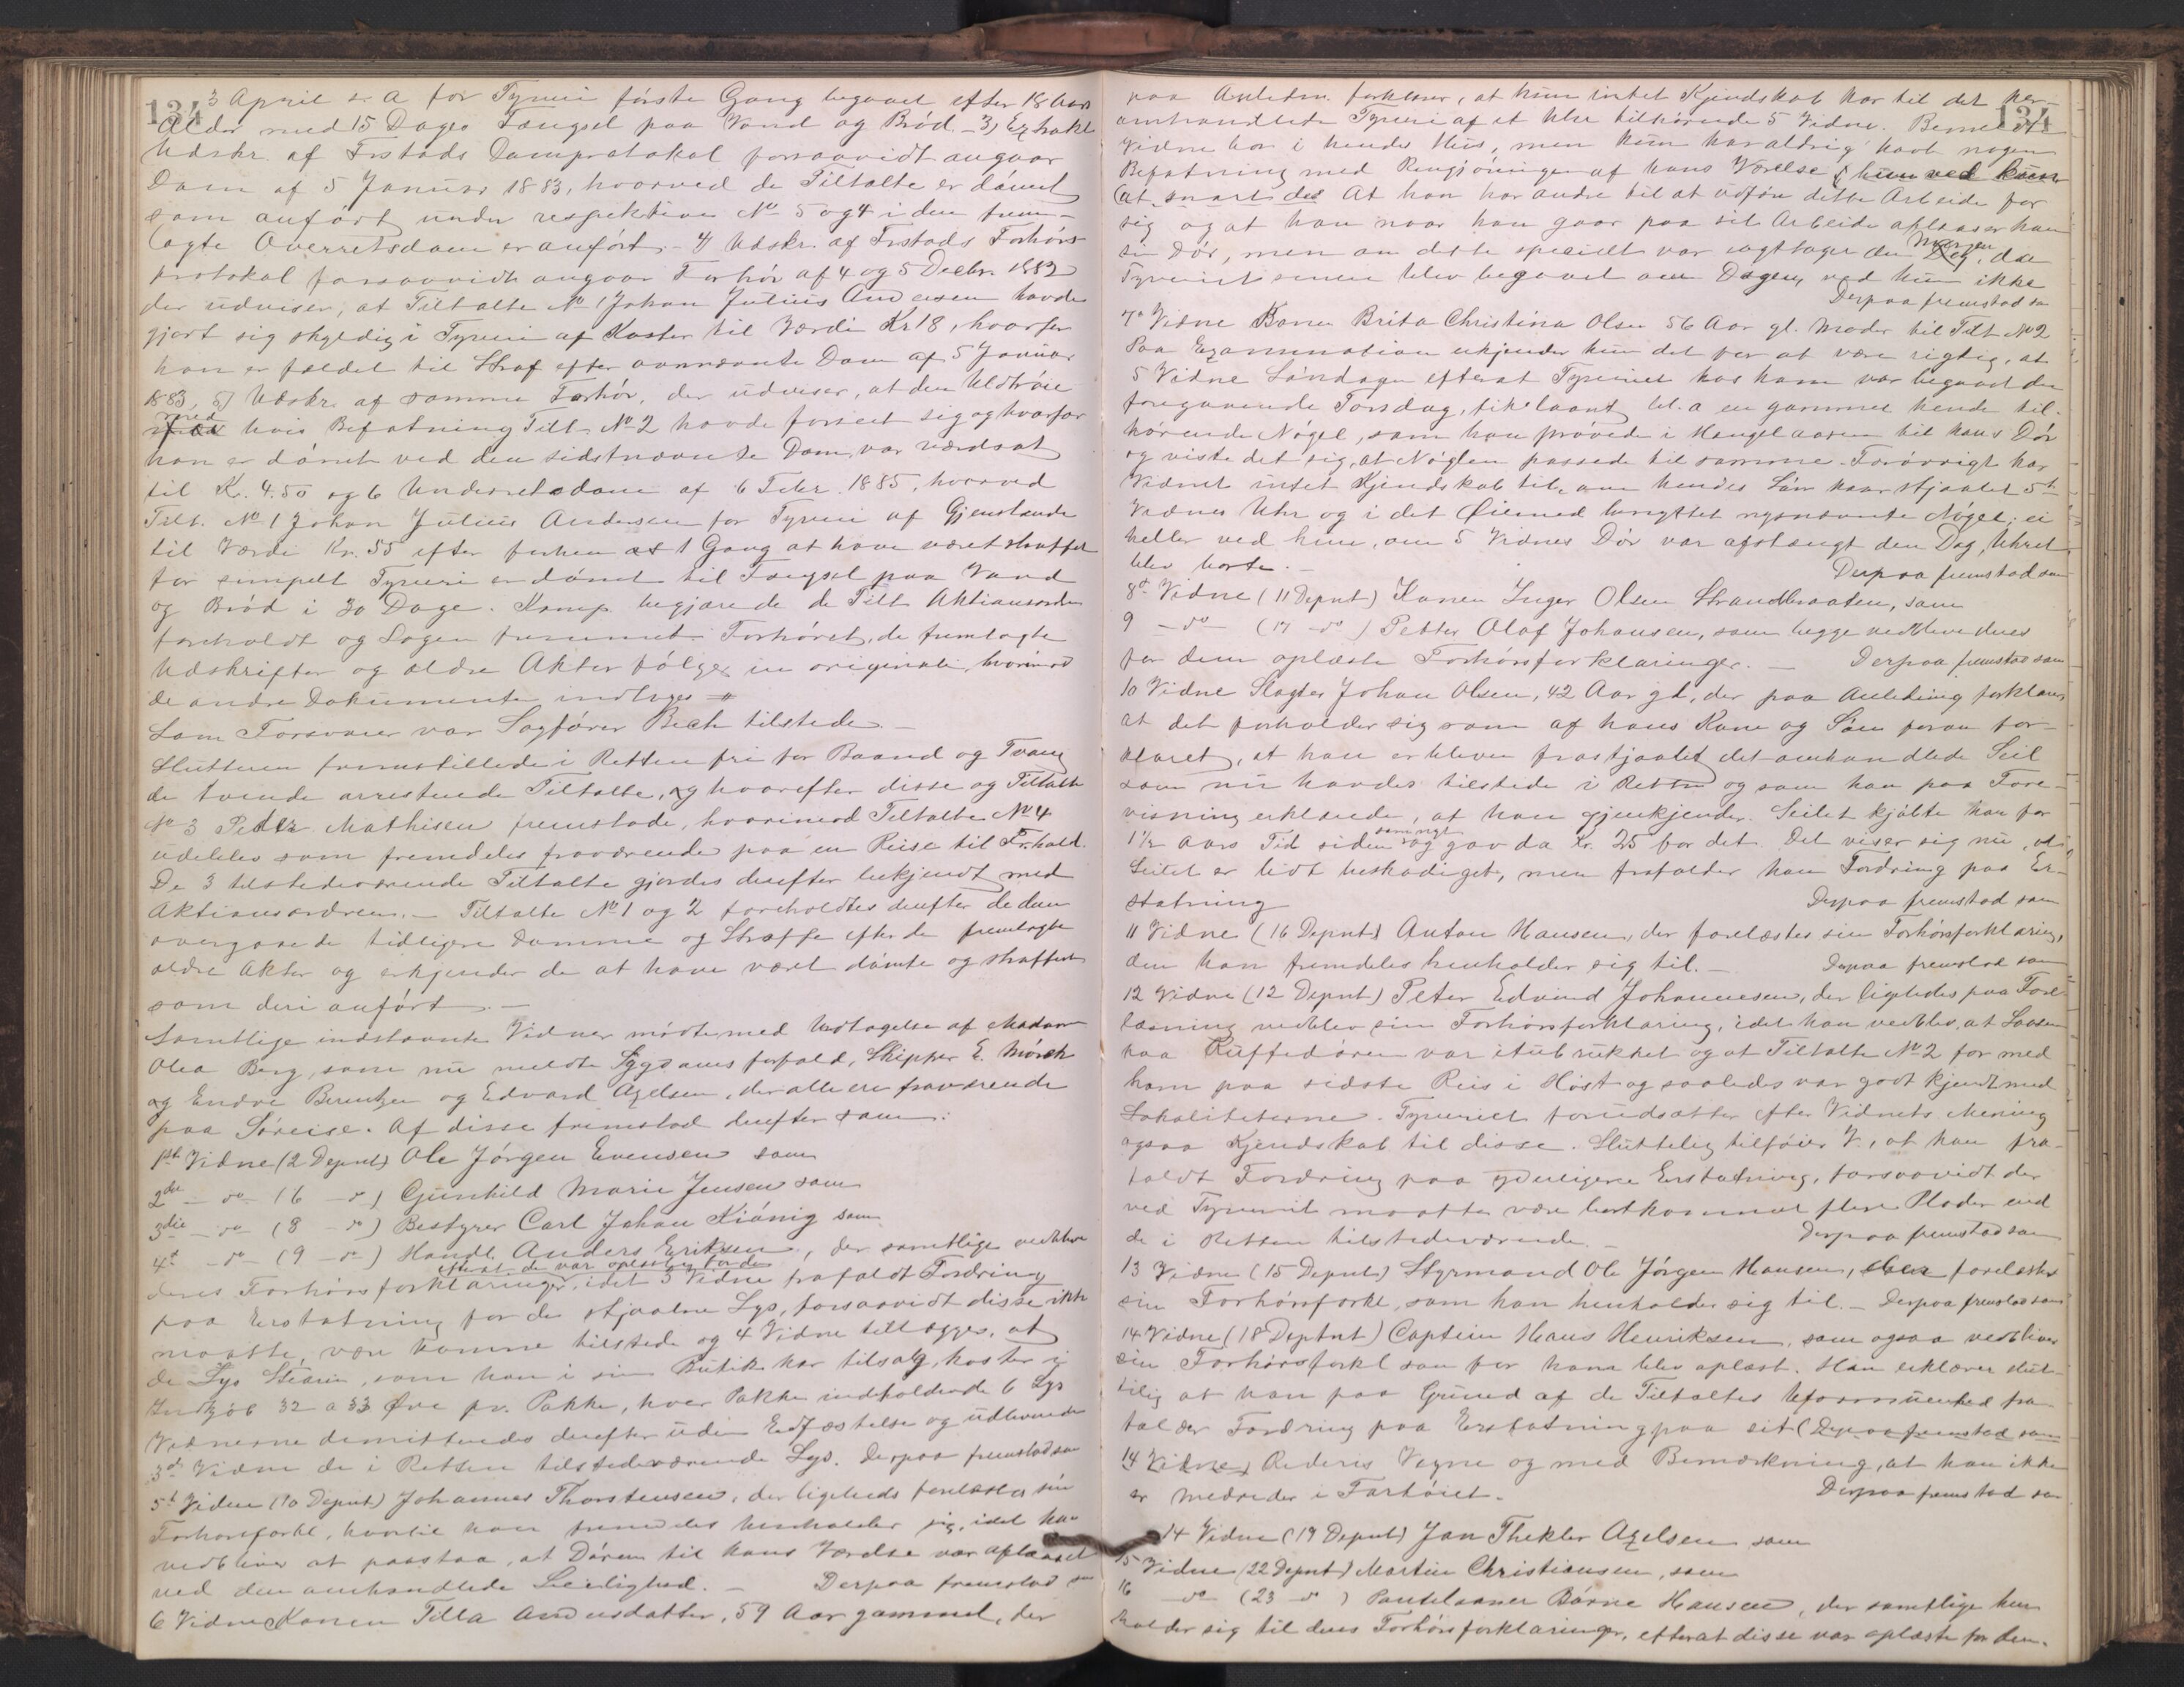 134
3 April s. A for Tyveri første Gang begaaet efter 18 Aars
Alder med 15 Dages Fængsel paa Vand og Brød. - 3) Extrakt
Udskr. af Grstads Domprotokol forsaavidt angaar
Dom af 5 Januar 1883, hvorved de Tiltalte er dømt
som anført under respektive No 5 og 4 i den frem-
lagte Overretsdom er anført. - 4) Udskr. af Grstads Forhørs-
protokol forsaavidt angaar Forhør af 4 og 5 Decbr. 1882
der udviser, at Tiltalte No 1 Johan Julius Andersen havde
gjort sig skyldig i Tyveri af Koster til Værdi Kr 18, hvorfor
han er fældet til Straf efter ovennævnte Dom af 5 Januar
1883, 5) Udskr. af samme Forhør, der udviser, at den Uldtrøie
med hvis Befatning Tilt. No 2 havde forseet sig og hvorfor
han er dømt ved den sidstnævnte Dom, var værdsat
til Kr. 4.50 og 6 Underretsdom af 6 Febr. 1885, hvorved
Tilt. No 1 Johan Julius Andersen for Tyveri af Gjenstande
til Værdi Kr. 55 efter forhen at 1 Gang at have været straffet
for simpelt Tyveri er dømt til Fængsel paa Vand
og Brød i 30 Dage. Komp. begjærede de Tilt. Aktionsordren
foreholdt og Sagen fremmet. Forhøret, de fremlagte
Udskrifter og ældre Akter følger in originali, hvorimod
de andre Dokumenter indtages #
Som Forsvarer var Sagfører Bech tilstede. -
Slutteren fremstillede i Retten fri for Baand og Tvang
de tvende arresterede Tiltalte, og hvorefter disse og Tiltalte
No 3 Peder Mathisen fremstode, hvorimod Tiltalte No 4
udeblev som fremdeles fraværende paa en Reise til Fr.hald.
De 3 tilstedeværende Tiltalte gjordes derefter bekjendt med
Aktionsordren. - Tiltalte No 1 og 2 foreholdtes derefter de dem
overgaaede tidligere Domme og Straffe efter de fremlagte
ældre Akter og erkjender de at have været dømte og straffede
som deri anført. -
Samtlige indstævnte Vidner mødte med Undtagelse af Madam
Olea Berg, som nu meldte Sygdoms forfald, Skipper E. Mørch
og Endre Berentzen og Edvard Axelsen, der alle ere fraværende
paa Søreise. Af disse fremstod derefter som:
1ste Vidne (2 Deput) Ole Jørgen Evensen som
2det - do - (6 - do) Gunhild Marie Jensen som
3die - do - (8 - do) Bestyrer Carl Johan Kiønig som
4de - do - (9 - do) Handl. Anders Eriksen, der samtlige vedblev
efterat de var oplæst for dem
deres Forhørsforklaringer, idet 3 Vidne frafaldt Fordring
paa Erstatning for de stjaalne Lys, forsaavidt disse ikke
maatte være komne tilstede og 4 Vidne tillægger, at
de Lys Stearin, som han i sin Butik har tilsalg, koster i
Indkjøb 32 a 33 Øre pr. Pakke, hver Pakke indholdende 6 Lys
Vidnerne demitteredes derefter uden Edfæstelse og udleveredes
3de Vidne de i Retten tilstedeværende Lys. Derpaa fremstod som
5t Vidne (10 Deput) Johannes Thorstensen, der ligeledes forelæstes sin
Forhørsforkl., hvortil han fremdeles henholder sig, idet han
vedbliver at paastaa, at Døren til hans Værelse var aflaaset
ved den omhandlede Leilighed. - Derpaa fremstod som
6 Vidne Konen Tilla Andersdatter, 59 Aar gammel, der
134
paa Anledn. forklarer, at hun intet Kjendskab har til det her-
omhandlede Tyveri af et Uhr tilhørende 5 Vidne. Bemeldte
Vidne bor i hendes Hus, men hun har aldrig havt nogen
Befatning med Rengjøringen af hans Værelse, hun ved kun
at snart det At han har andre til at udføre dette Arbeide for
sig og at han naar han gaar paa sit Arbeide aflaaser han
sin Dør, men om dette specielt var iagttaget den Morgen, da
Tyveriet senere blev begaaet om Dagen, ved hun ikke
Derpaa fremstod som
7de Vidne Kone Brita Christina Olsen 56 Aar gl. Moder til Tilt No 2
Paa Examination erkjender hun det for at være rigtig, at
5 Vidne Søndagen efterat Tyveriet hos ham var begaaet den
foregaaende Torsdag, fik laant bl. a en gammel hende til-
hørende Nøgel, som han prøvede i Hængelaasen til hans Dør
og viste det sig, at Nøglen passede til samme. Forøvrigt har
Vidnet intet Kjendskab til, om hendes Søn har stjaalet 5te
Vidnes Uhr og i det Øiemed benyttet nysnævnte Nøgel; ei
heller ved hun, om 5 Vidnes Dør var afstængt den Dag, Uhret
blev borte. - Derpaa fremstod som
8de Vidne (11 Deput) Konen Inger Olsen Strandbraaten, som
9 - do - (17 - do) Petter Olaf Johansen, som begge vedbleve deres
for dem oplæste Forhørsforklaringer. - Derpaa fremstod som
10 Vidne Slagter Johan Olsen, 42 Aar gl., der paa Anledning forklarer
at det forholder sig som af hans Kone og Søn foran for-
klaret, at han er bleven frastjaalet det omhandlede Seil
som nu havdes tilstede i Retten og som han paa Fore-
visning erklærede, at han gjenkjender. Seilet kjøbte han for
1½ Aars Tid siden som nyt og gav da Kr. 25 for det. Det viser sig nu, at
Seilet er lidt beskadiget, men frafalder han Fordring paa Er-
statning Derpaa fremstod som
11 Vidne (16 Deput) Anton Hansen, der forelæstes sin Forhørsforklaring,
den han fremdeles henholder sig til. - Derpaa fremstod som
12 Vidne (12 Deput) Peter Edvind Johannesen, der ligeledes paa Fore-
læsning vedblev sin Forhørsforklaring, idet han vedblev, at Laasen
paa Ruffedøren var itubrukket og at Tiltalte No 2 for med
ham paa sidste Reis i Høst og saaledes var godt kjendt med
Lokaliteterne. Tyveriet forudsætter efter Vidnets Mening
ogsaa Kjendskab til disse. Sluttelig tilføier V., at han fra-
faldt Fordring paa yderligere Erstatning, forsaavidt der
ved Tyveriet maatte være bortkommet flere Plader end
de i Retten tilstedeværende. - Derpaa fremstod som
13 Vidne (15 Deput) Styrmand Ole Jørgen Hansen, der forelæstes
sin Forhørsforkl., som han henholder sig til. - Derpaa fremstod som
14 Vidne (18 Deptnt) Captein Hans Henriksen, som ogsaa vedbliver
sin Forhørsforkl som for ham blev oplæst. Han erklærer slut-
telig at han paa Grund af de Tiltaltes Uformuenhed fra-
falder Fordring paa Erstatning paa sit (Derpaa fremstod som
14 Vidne) Rederis Vegne og med Bemærkning, at han ikke
er Medreder i Fartøiet. Derpaa fremstod som
14 Vidne (19 Deput) Jan Thekler Axelsen som
15 Vidne (22 Deput) Martin Christiansen, som
16 - do - (23 do) Pantelaaner Børre Hansen, der samtlige hen-
holder sig til deres Forhørsforklaringer, efterat disse var oplæste for dem.